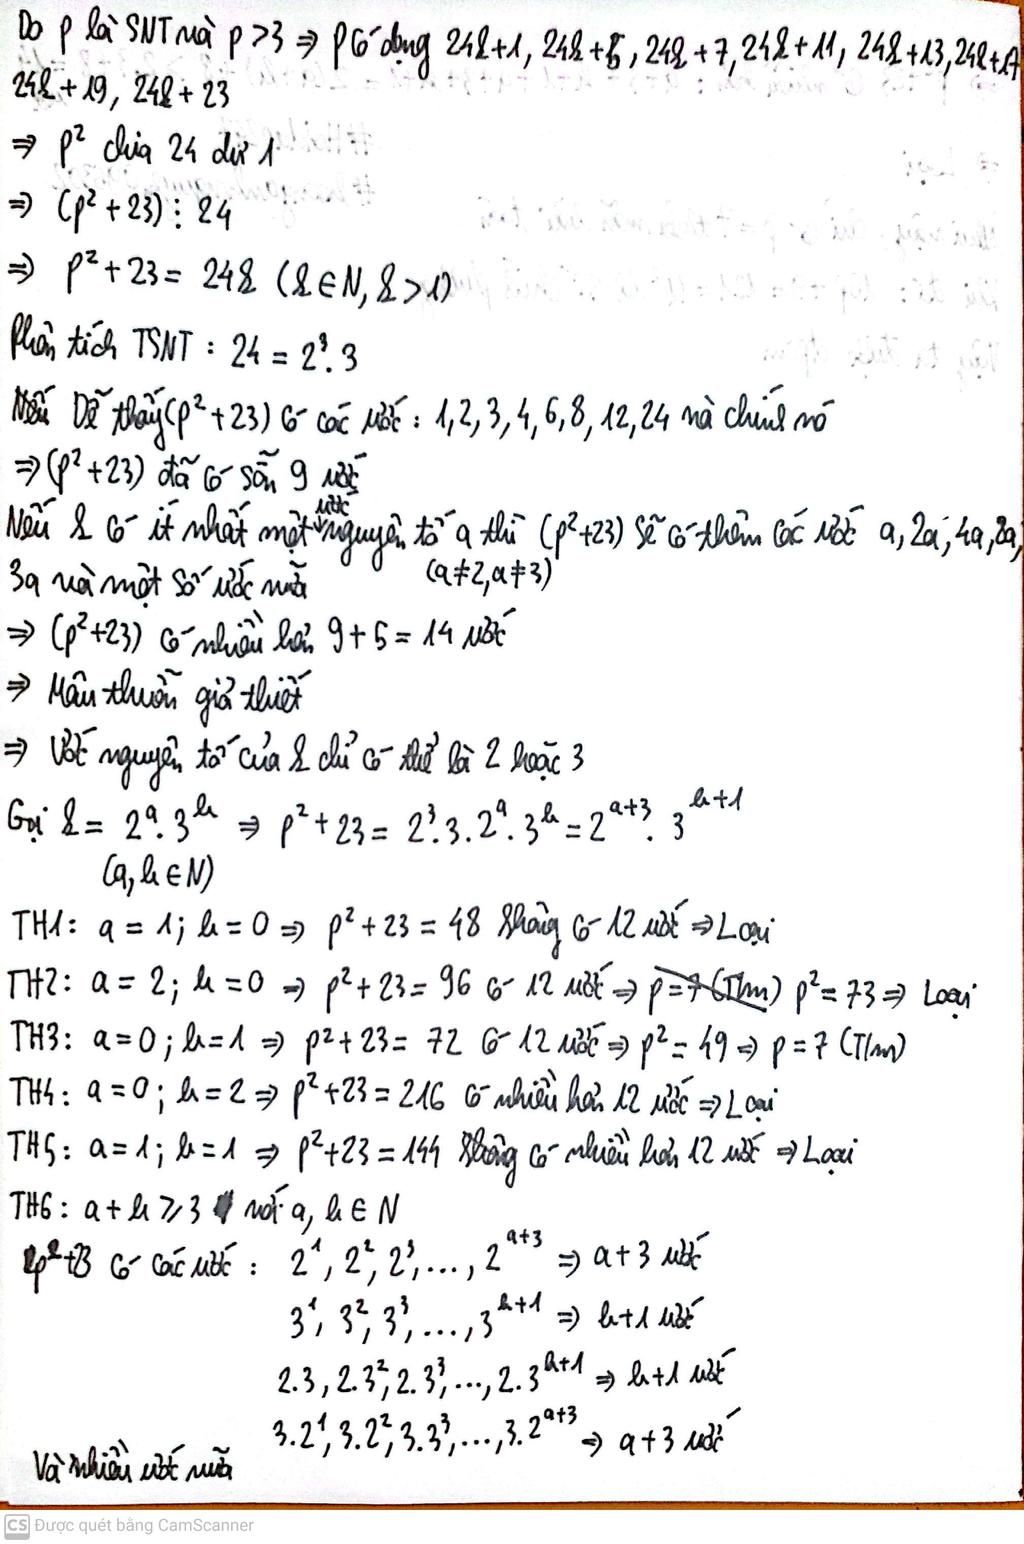 Do p là SNT mà p > 3 ⇒ p có dạng 24k+1, 24k+5, 24k+7, 24k+11, 24k+13, 24k+17
24k+19, 24k+23
⇒ p² chia 24 dư 1
⇒ (p²+23) ⋮ 24
⇒ p²+23 = 24k (k∈N, k>1)
Phân tích TSNT : 24 = 2³.3
Dễ thấy (p²+23) có các ước : 1, 2, 3, 4, 6, 8, 12, 24 và chính nó
⇒ (p²+23) đã có sẵn 9 ước
Nếu k có ít nhất một ước nguyên tố a thì (p²+23) sẽ có thêm các ước a, 2a, 4a, 8a,
(a≠2, a≠3)
3a và một số ước nữa
⇒ (p²+23) có nhiều hơn 9+5 = 14 ước
⇒ Mâu thuẫn giả thiết
⇒ Ước nguyên tố của k chỉ có thể là 2 hoặc 3
Gọi k = 2^a.3^b ⇒ p²+23 = 2³.3.2^a.3^b = 2^(a+3).3^(b+1)
(a, b∈N)
TH1: a = 1; b = 0 ⇒ p²+23 = 48 không có 12 ước ⇒ Loại
TH2: a = 2; b = 0 ⇒ p²+23 = 96 có 12 ước ⇒ p=7 (T/m) p² = 73 ⇒ Loại
TH3: a=0; b=1 ⇒ p²+23 = 72 có 12 ước ⇒ p² = 49 ⇒ p = 7 (T/m)
TH4: a=0; b=2 ⇒ p²+23 = 216 có nhiều hơn 12 ước ⇒ Loại
TH5: a=1; b=1 ⇒ p²+23 = 144 có nhiều hơn 12 ước ⇒ Loại
TH6: a+b ⩾ 3 với a, b ∈ N
p²+23 có các ước : 2¹, 2², 2³, ..., 2^(a+3) ⇒ a+3 ước
3¹, 3², 3³, ..., 3^(b+1) ⇒ b+1 ước
2.3, 2.3², 2.3³, ..., 2.3^(b+1) ⇒ b+1 ước
3.2¹, 3.2², 3.3³, ..., 3.2^(a+3) ⇒ a+3 ước
Và nhiều ước nữa
CS Được quét bằng CamScanner